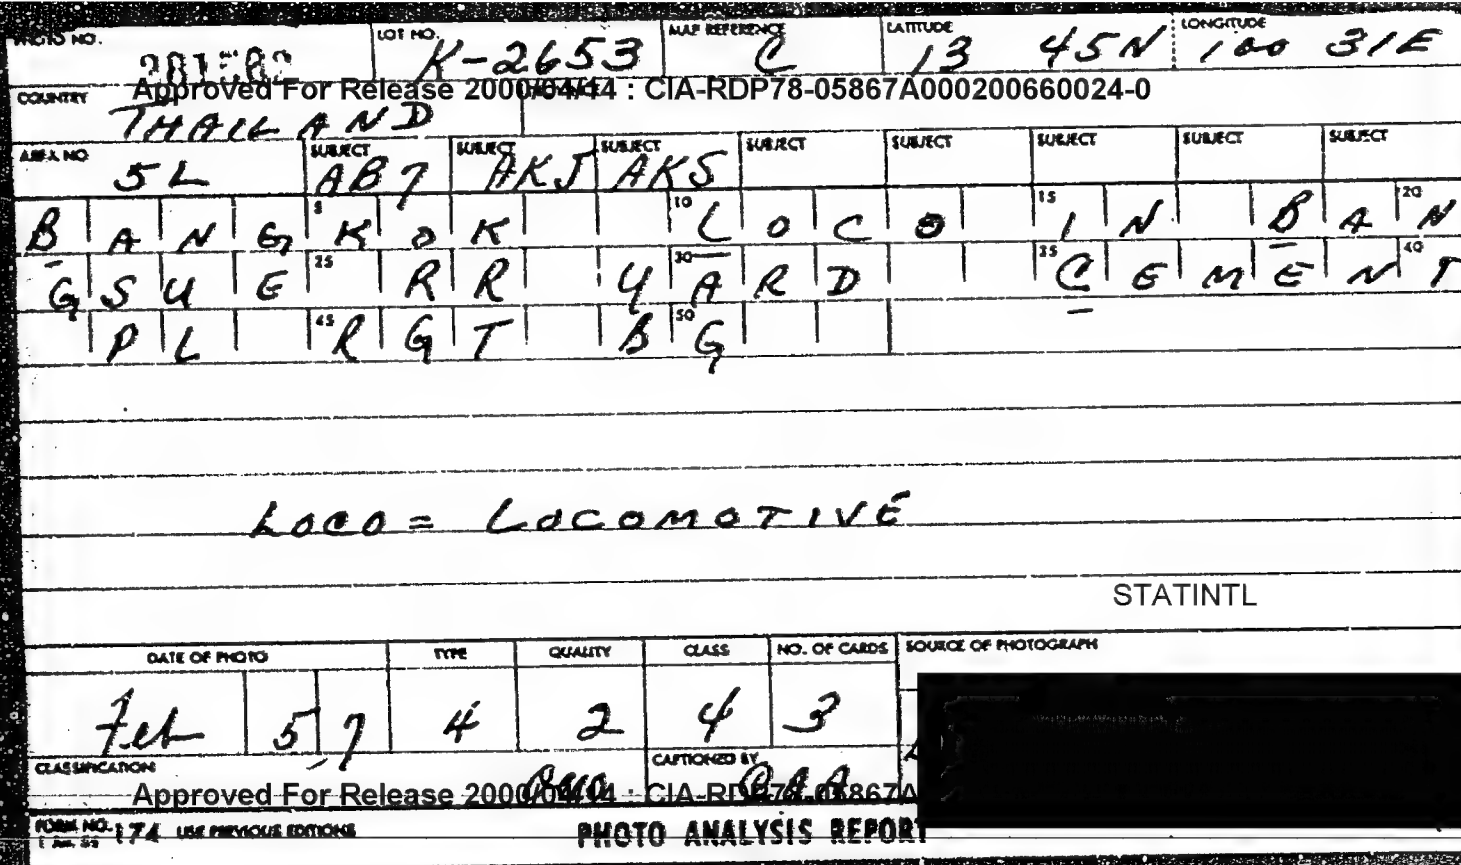 PHOTO NO. LOT NO. MAP REFERENCE LATITUDE LONGITUDE
K-2653 C 13 45N 100 31E
Approved For Release 2000/04/14 : CIA-RDP78-05867A000200660024-0
COUNTRY
THAILAND
AREA NO. SUBJECT SUBJECT SUBJECT SUBJECT SUBJECT SUBJECT SUBJECT SUBJECT
5L AB7 AKJ AKS
5 10 15 20
BANGKOK LOCO IN BAN
25 30 35 40
GSUE RR YARD CEMENT
45 50
PL RGT BG
LOCO = LOCOMOTIVE
STATINTL
DATE OF PHOTO TYPE QUALITY CLASS NO. OF CARDS SOURCE OF PHOTOGRAPH
Feb 57 4 2 4 3
CLASSIFICATION CAPTIONED BY
Approved For Release 2000/04/14 : CIA-RDP78-05867A
FORM NO. 174 USE PREVIOUS EDITIONS PHOTO ANALYSIS REPORT